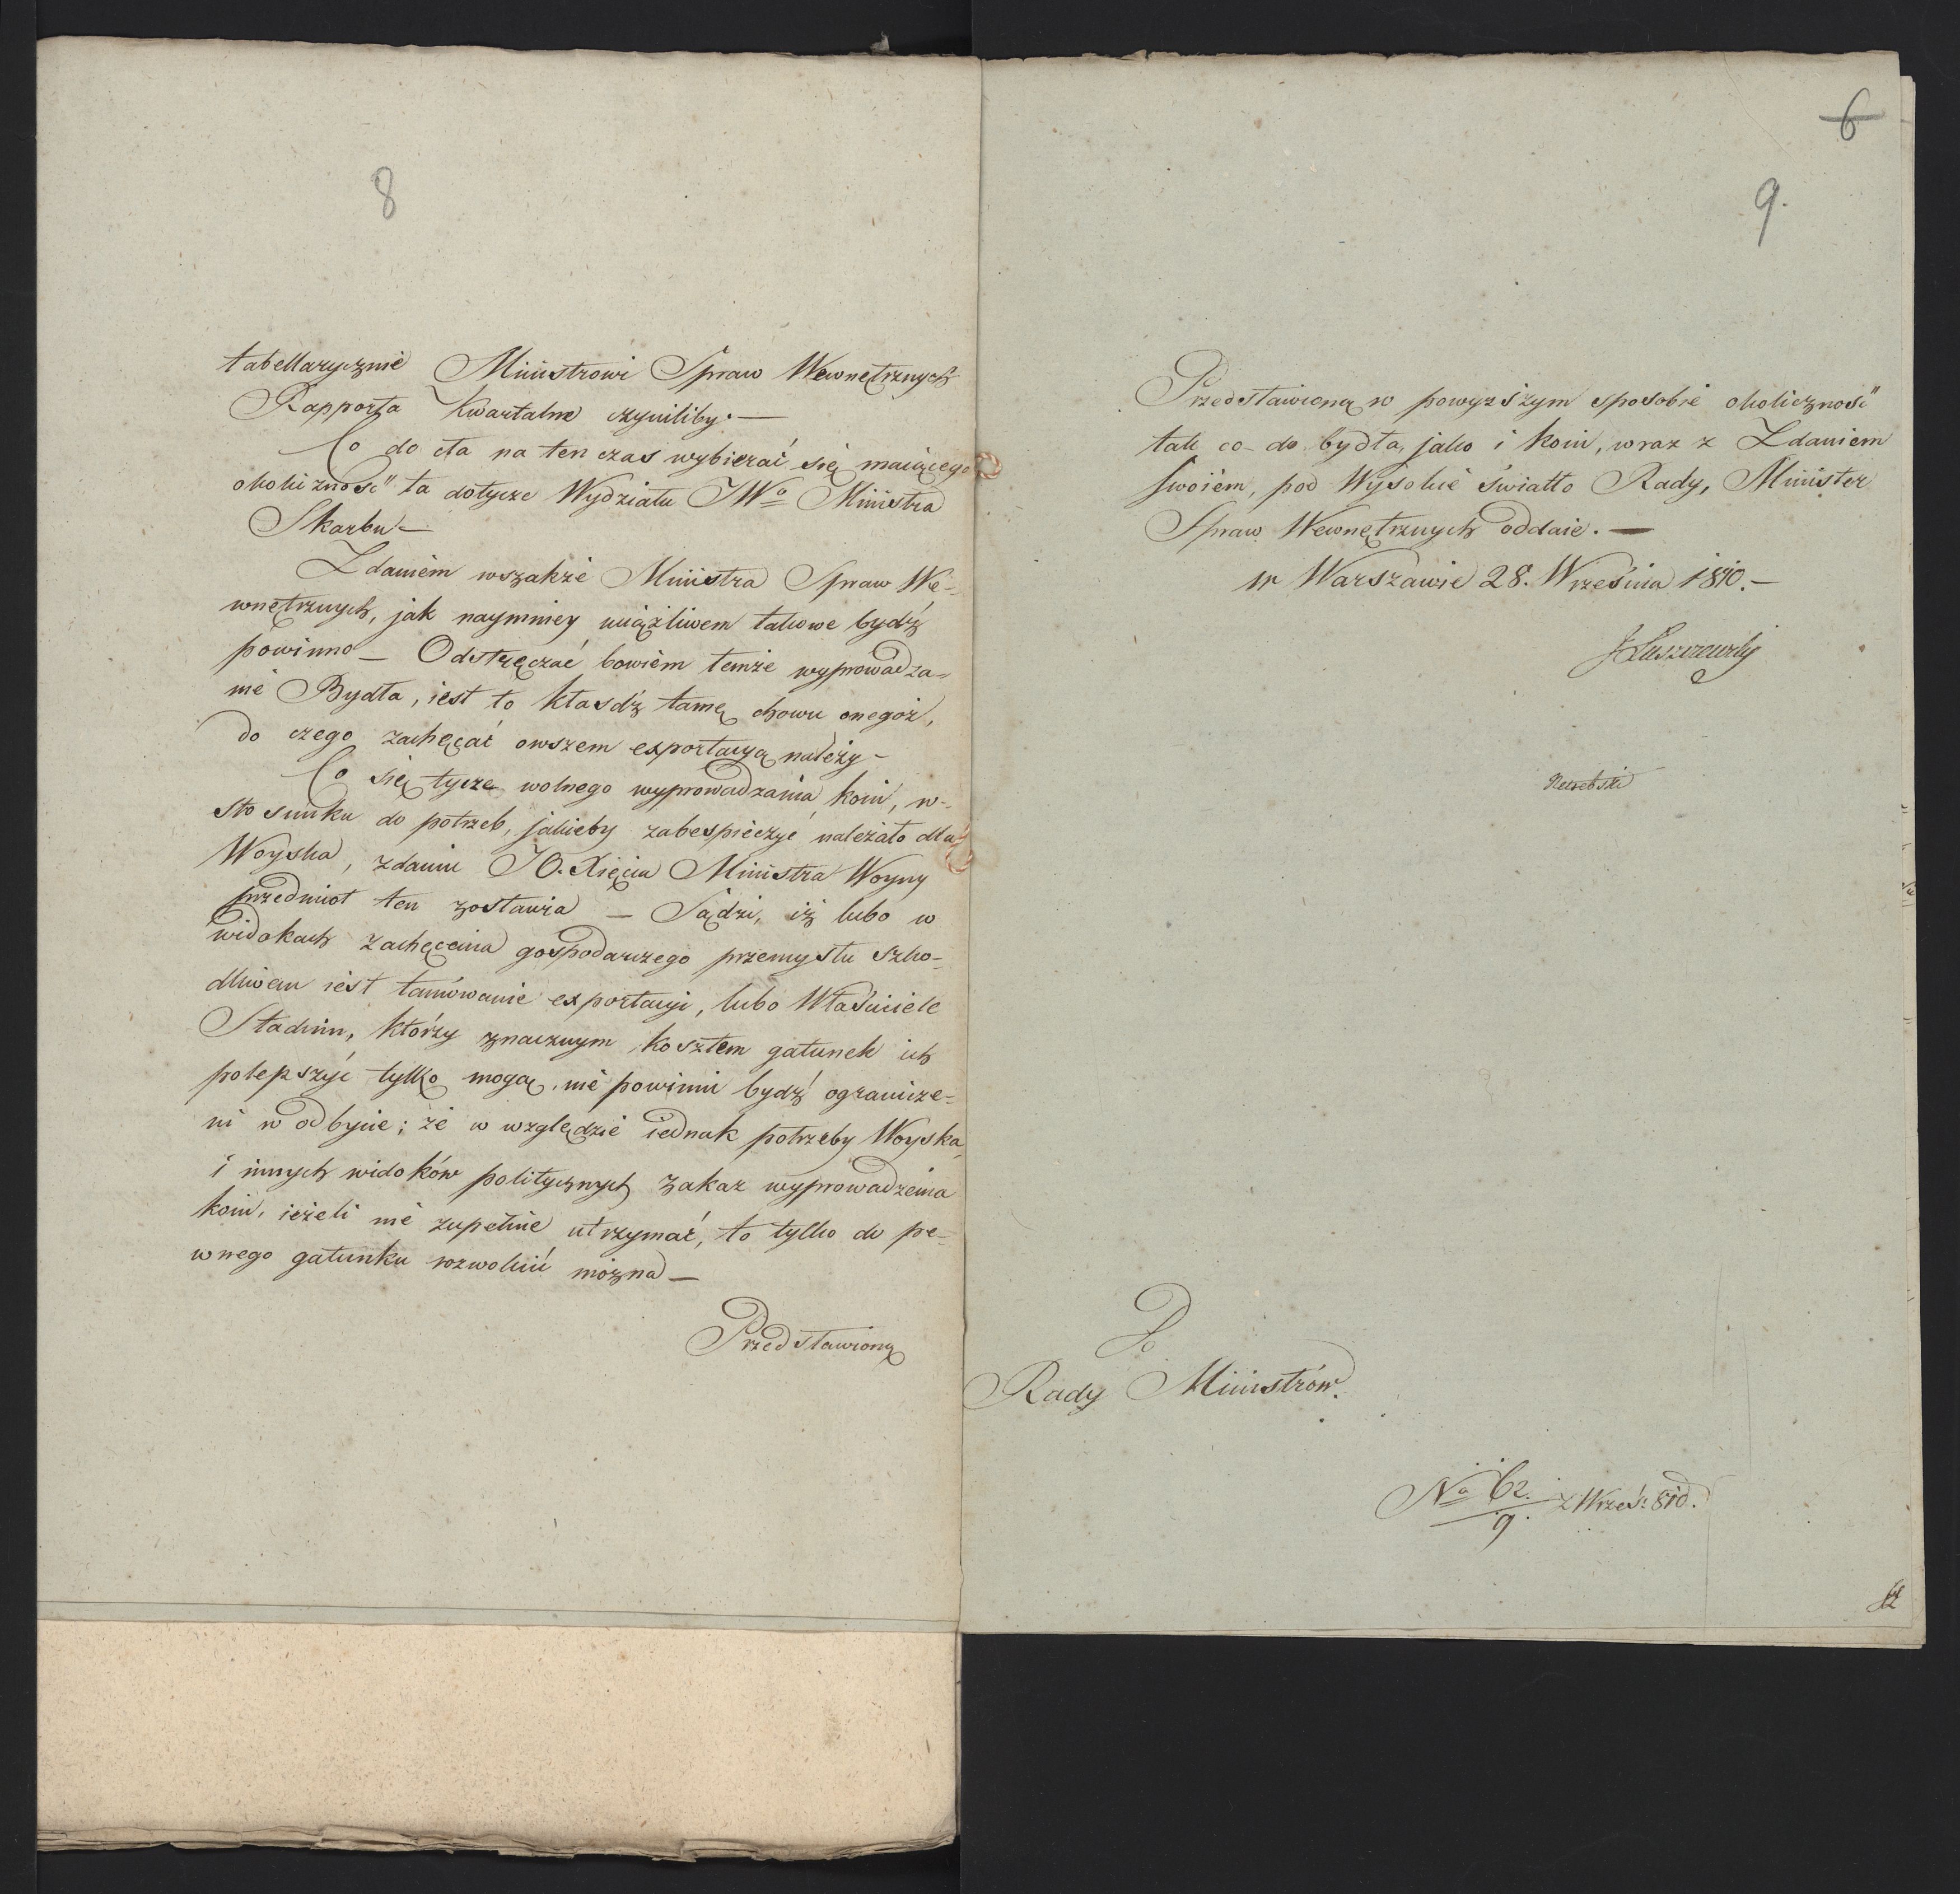 8
tabellarycznie Ministrowi Spraw Wewnętrznych
Rapporta Kwartalne czyniliby. —
Co do cła na ten czas wybierać się maiącego
okoliczność ta dotycze Wydziału JWo Ministra
Skarbu —
Zdaniem wszakże Ministra Spraw We-
wnętrznych, jak naymniey uciążliwem takowe bydź
powinno — Odstręczać bowiem temże wyprowadza-
nie Bydła, iest to kłaśdź tamę chowu onegoż,
do czego zachęcać owszem exportacyą należy —
Co się tycze wolnego wyprowadzania koni, w-
stosunku do potrzeb, jakieby zabespieczyć należało dla
Woyska, zdaniu JO. Xięcia Ministra Woyny
przedmiot ten zostawia — Sądzi, iż lubo w
widokach zachęcenia gospodarczego przemysłu szko-
dliwem iest tamowanie exportacyi, lubo Właściciele
Stadnin, którzy znacznym kosztem gatunek ich
polepszyć tylko mogą, nie powinni bydź ogranicze-
ni w odbycie; że w względzie iednak potrzeby Woyska,
i innych widoków politycznych zakaz wyprowadzenia
koni, ieżeli nie zupełnie utrzymać, to tylko do pe-
wnego gatunku rozwolnić można —
Przedstawioną
6
9.
Przedstawioną w powyższym sposobie okoliczność
tak co do bydła, jako i koni, wraz z Zdaniem
swoiem, pod Wysokie światło Rady, Minister
Spraw Wewnętrznych oddaie. —
w Warszawie 28. Września 1810. —
J Łuszczewski
Do
Rady Ministrów.
No 62. z Wrześ: 810.
9.